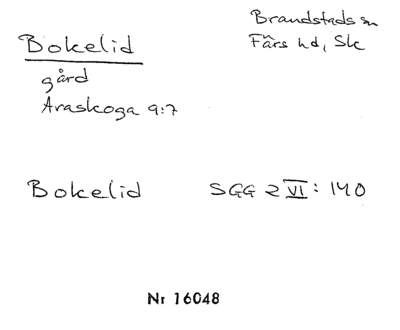 Bokelid
Brandstads sn
Färs hd, Sk
gård
Araskoga 9:7
Bokelid SGG 2 VI: 140
Nr 16048